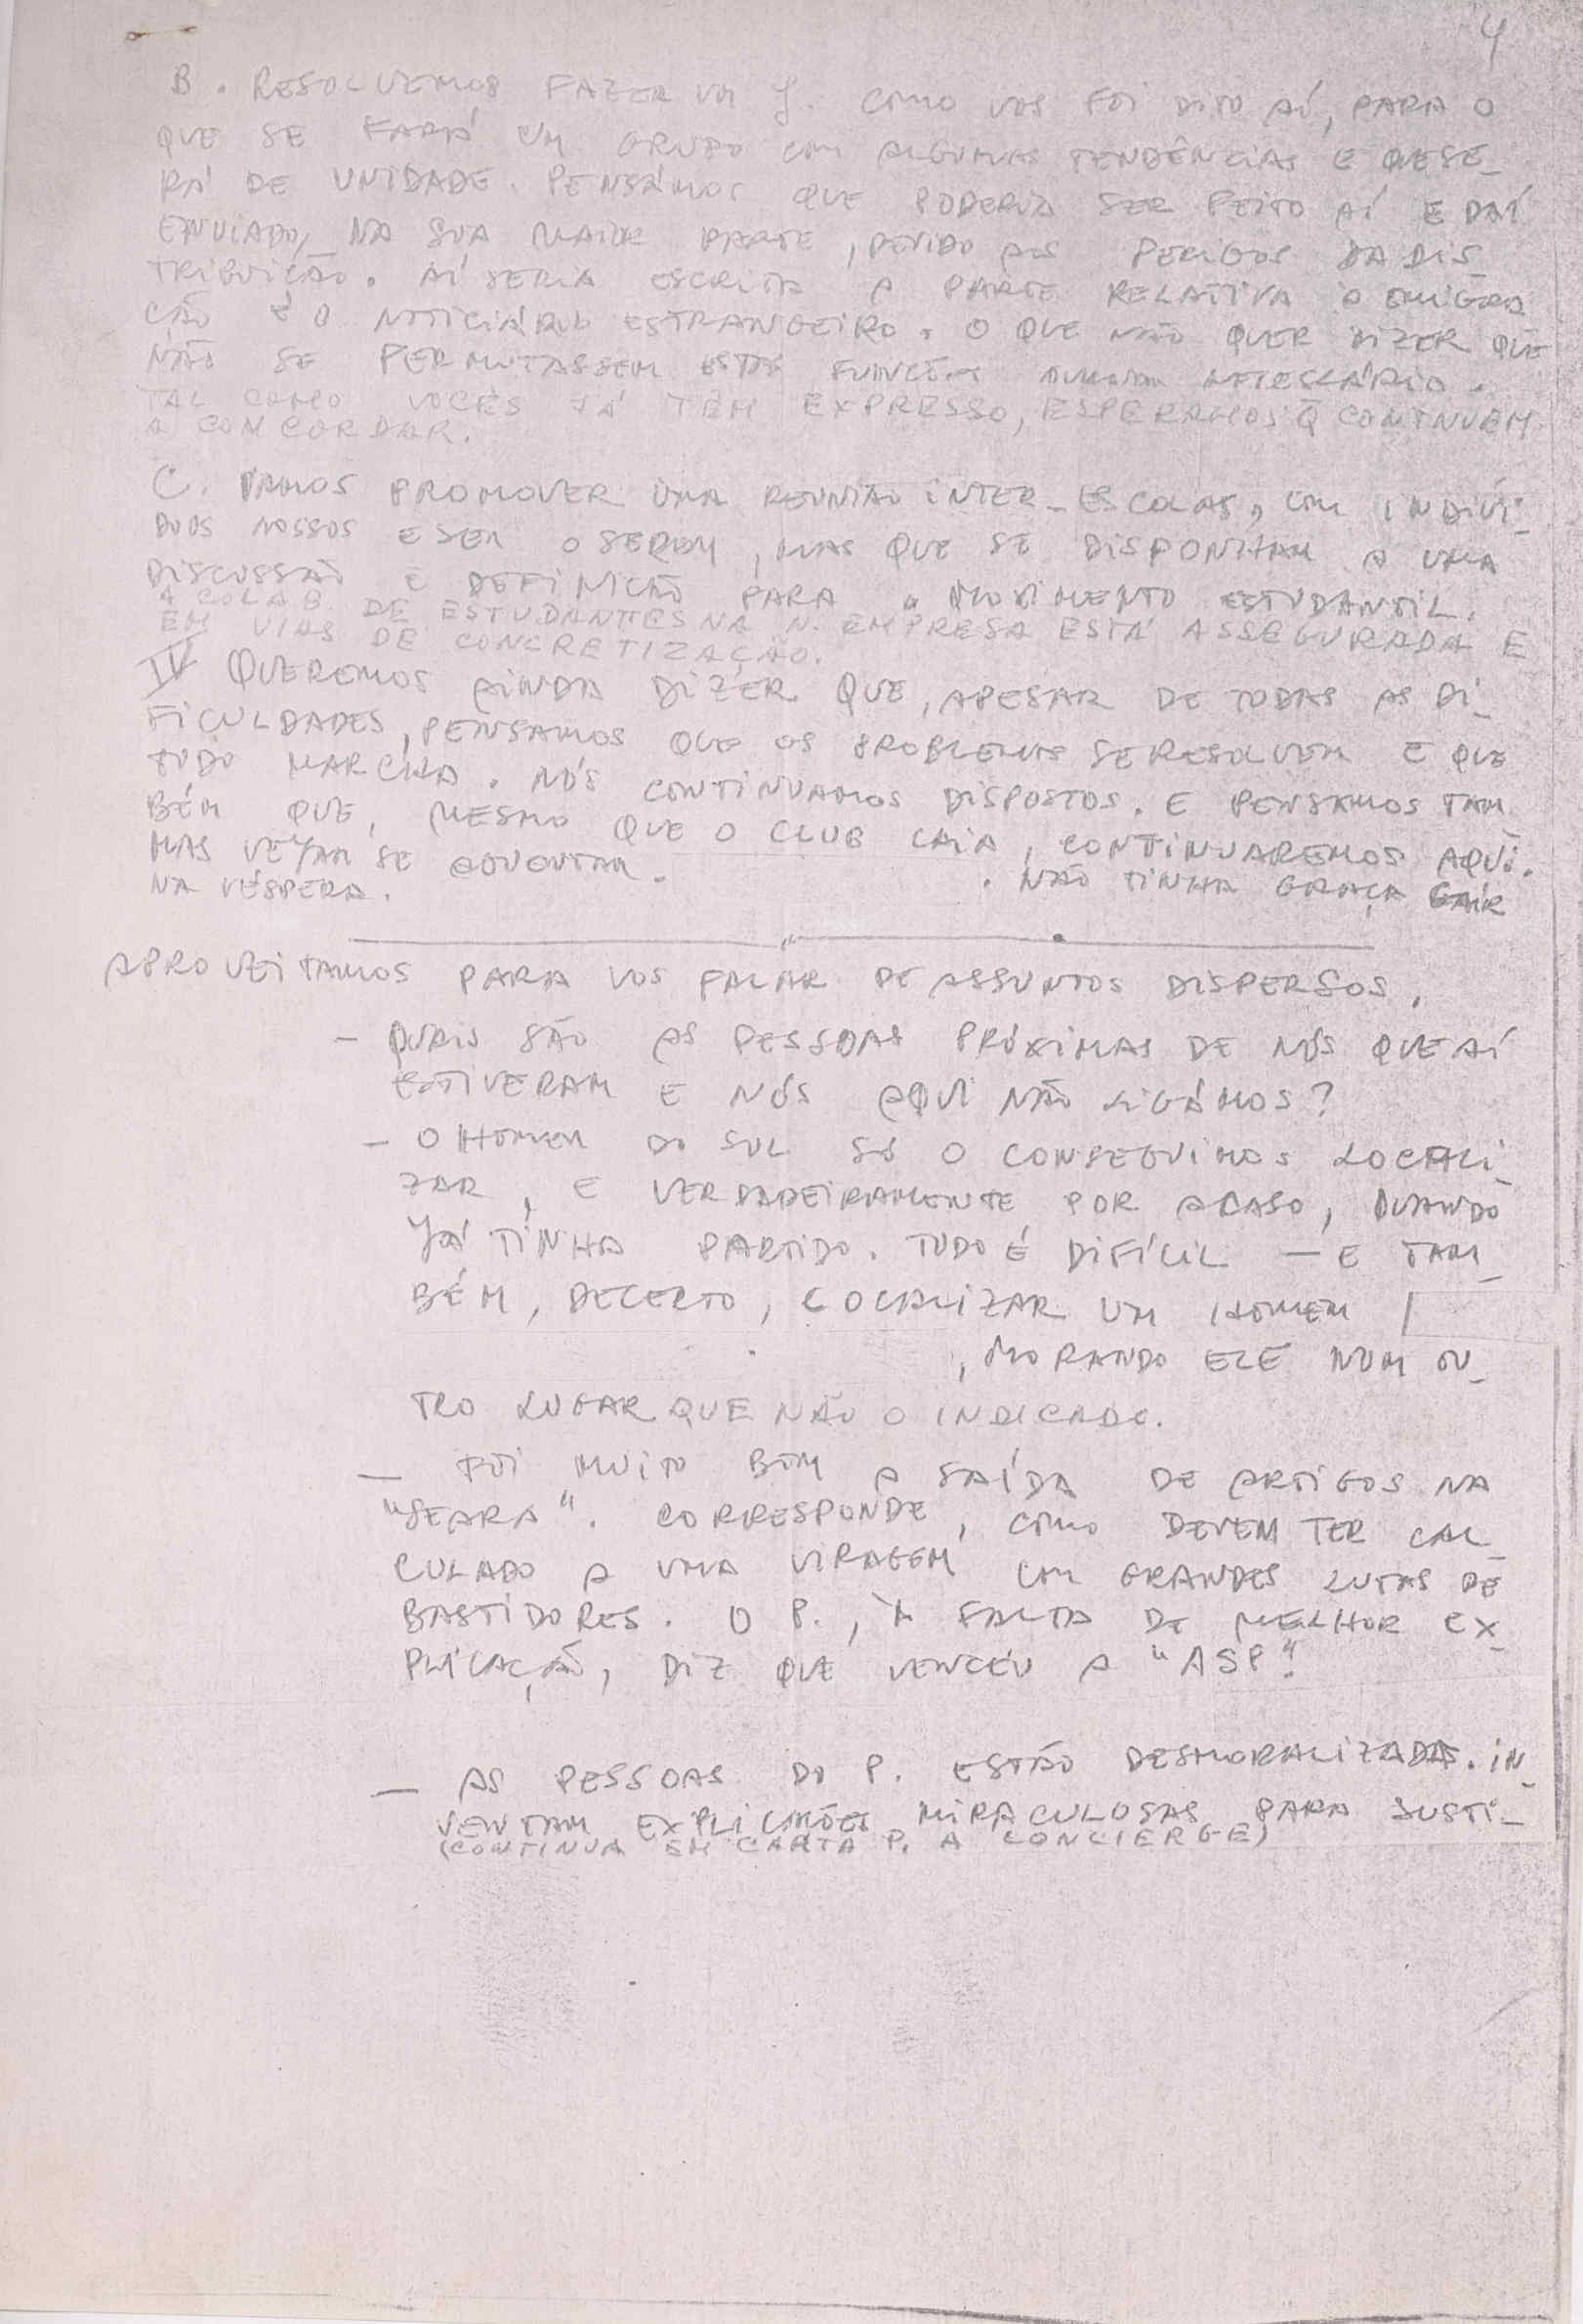 4
B. RESOLVEMOS FAZER UM J. COMO VOS FOI DITO AÍ, PARA O
QUE SE FARÁ UM GRUPO COM ALGUMAS TENDÊNCIAS E QUE SE_
RÁ DE UNIDADE. PENSÁMOS QUE PODERIA SER FEITO AÍ E DAÍ
ENVIADO, NA SUA MAIOR PARTE, DEVIDO AOS PERIGOS DA DIS_
TRIBUIÇÃO. AÍ SERIA ESCRITA A PARTE RELATIVA À EMIGRA
ÇÃO E O NOTICIÁRIO ESTRANGEIRO. O QUE NÃO QUER DIZER QUE
NÃO SE PERMUTASSEM ESTAS FUNÇÕES QUANDO NECESSÁRIO.
TAL COMO VOCÊS JÁ TÊM EXPRESSO, ESPERAMOS Q̄ CONTINUEM
A CONCORDAR.
C. VAMOS PROMOVER UMA REUNIÃO INTER-ESCOLAS, COM INDIVÍ_
DUOS NOSSOS E SEM O SEREM, MAS QUE SE DISPONHAM A UMA
DISCUSSÃO E DEFINIÇÃO PARA O MOVIMENTO ESTUDANTIL.
A COLAB. DE ESTUDANTES NA N. EMPRESA ESTÁ ASSEGURADA E
EM VIAS DE CONCRETIZAÇÃO.
IV QUEREMOS AINDA DIZER QUE, APESAR DE TODAS AS DI_
FICULDADES, PENSAMOS QUE OS PROBLEMAS SE RESOLVEM E QUE
TUDO MARCHA. NÓS CONTINUAMOS DISPOSTOS. E PENSAMOS TAM
BÉM QUE, MESMO QUE O CLUB CAIA, CONTINUAREMOS AQUI.
MAS VEJAM SE AGUENTAM. . NÃO TINHA GRAÇA CAIR
NA VÉSPERA.
APROVEITAMOS PARA VOS FALAR DE ASSUNTOS DISPERSOS.
- QUAIS SÃO AS PESSOAS PRÓXIMAS DE NÓS QUE AÍ
ESTIVERAM E NÓS AQUI NÃO LIGÁMOS?
- O HOMEM DO SUL SÓ O CONSEGUIMOS LOCALI_
ZAR, E VERDADEIRAMENTE POR ACASO, QUANDO
JÁ TINHA PARTIDO. TUDO É DIFÍCIL - E TAM_
BÉM, DECERTO, LOCALIZAR UM HOMEM
, MORANDO ELE NUM OU_
TRO LUGAR QUE NÃO O INDICADO.
- FOI MUITO BOM A SAÍDA DE ARTIGOS NA
"SEARA". CORRESPONDE, COMO DEVEM TER CAL_
CULADO A UMA VIRAGEM COM GRANDES LUTAS DE
BASTIDORES. O P., À FALTA DE MELHOR EX_
PLICAÇÃO, DIZ QUE VENCEU A "ASP".
- AS PESSOAS DO P. ESTÃO DESMORALIZADAS. IN_
VENTAM EXPLICAÇÕES MIRACULOSAS PARA JUSTI_
(CONTINUA EM CARTA P. A CONCIERGE)